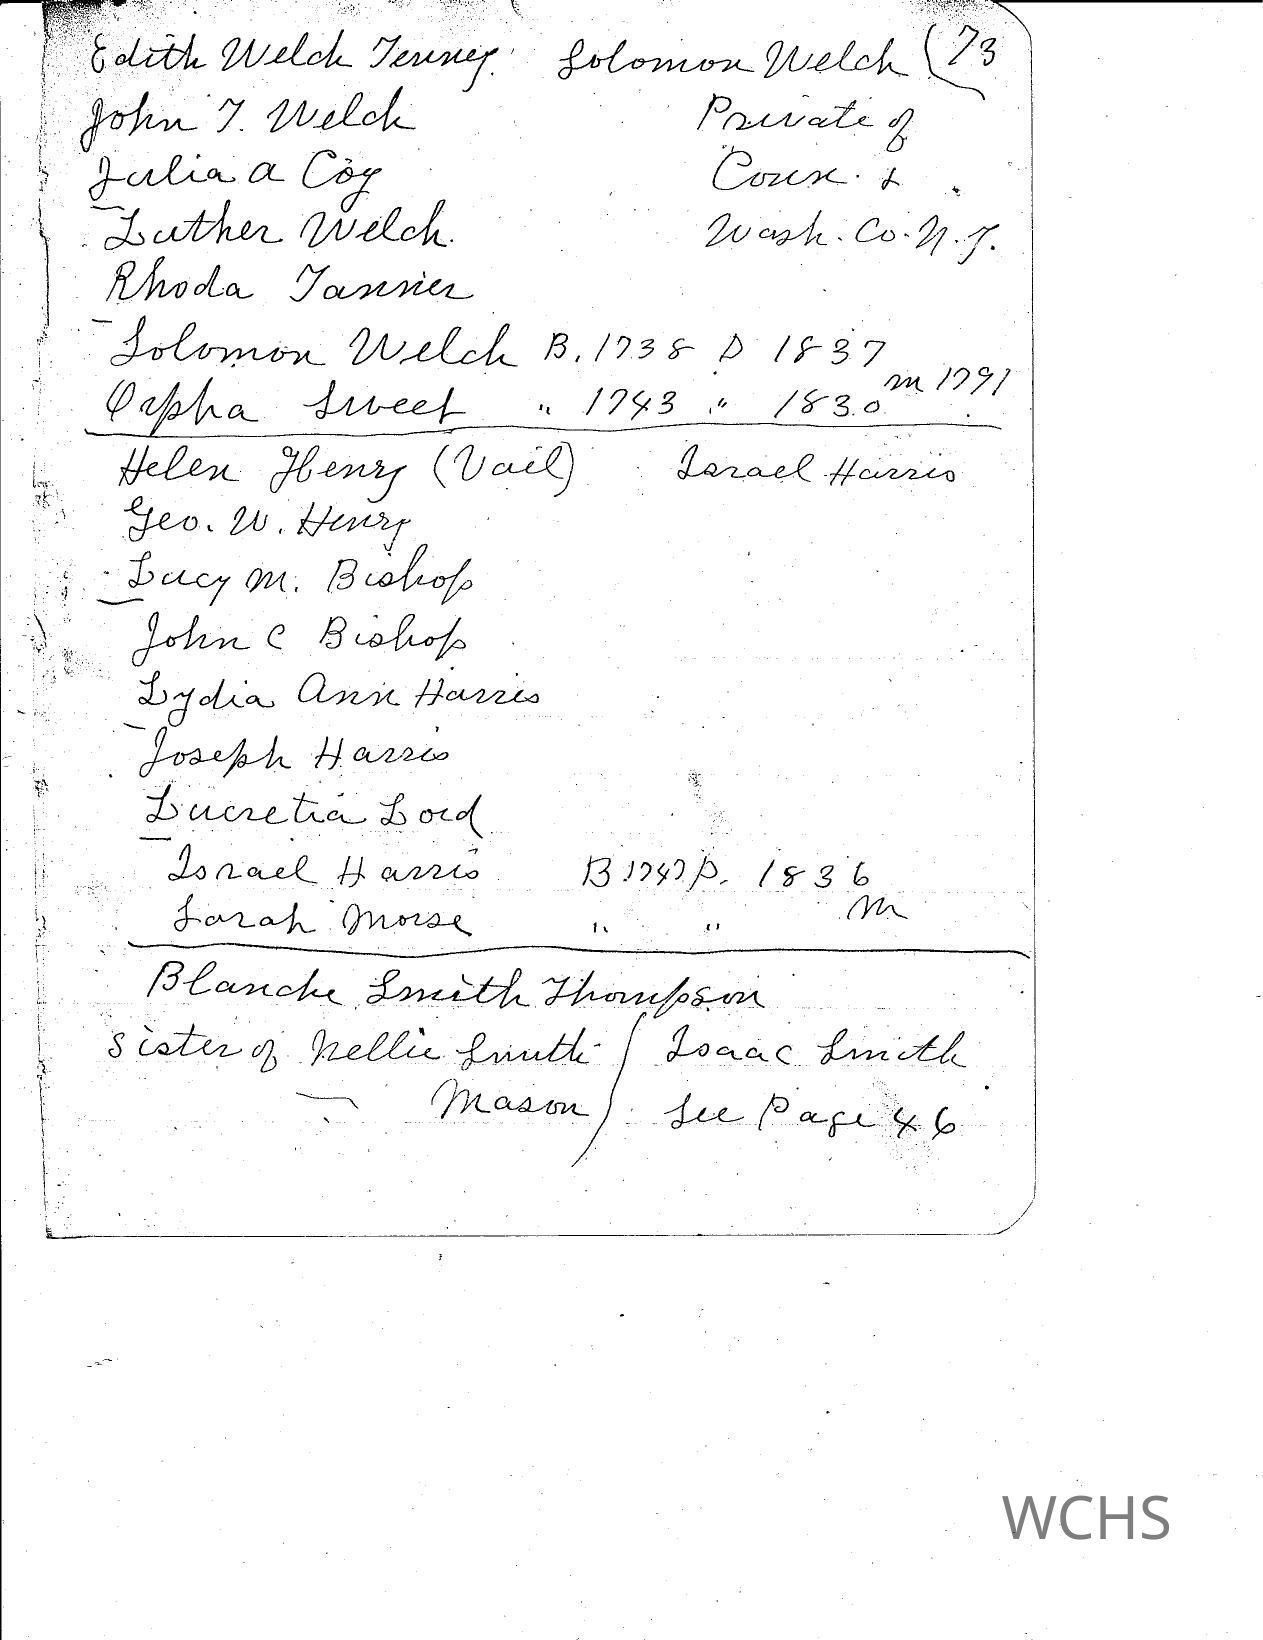 Edith Welch Tenney. Solomon Welch (73
John T. Welch Private of
Julia A Coy Conn. &
Luther Welch. Wash. Co. N.Y.
Rhoda Tanner
Solomon Welch B. 1738 D 1837
Orpha Sweet " 1743 " 1830 m 1791
Helen Henry (Vail) Israel Harris
Geo. W. Henry
Lucy M. Bishop
John C Bishop
Lydia Ann Harris
Joseph Harris
Lucretia Lord
Israel Harris B 1747 D. 1836
Sarah Morse " " m
Blanche Smith Thompson
sister of Nellie Smith / Isaac Smith
Mason ) See Page 46
WCHS